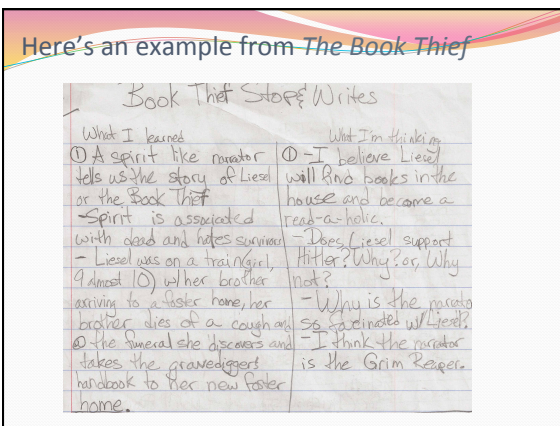 Here's an example from The Book Thief
Book Thief Stop & Writes
What I learned
① A spirit like narrator
tells us the story of Liesel
or the Book Thief
-Spirit is associated
with dead and hates survivors
- Liesel was on a train (girl,
9 almost 10) w/ her brother
arriving to a foster home, her
brother dies of a cough and
@ the funeral she discovers and
takes the gravediggers
handbook to her new foster
home.
What I'm thinking
① -I believe Liesel
will find books in the
house and become a
read-a-holic.
- Does Liesel support
Hitler? Why? or, Why
not?
- Why is the narrator
so facinated w/ Liesel?
-I think the narrator
is the Grim Reaper.